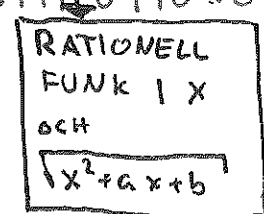 RATIONELL
FUNK I X
OCH
√x²+ax+b